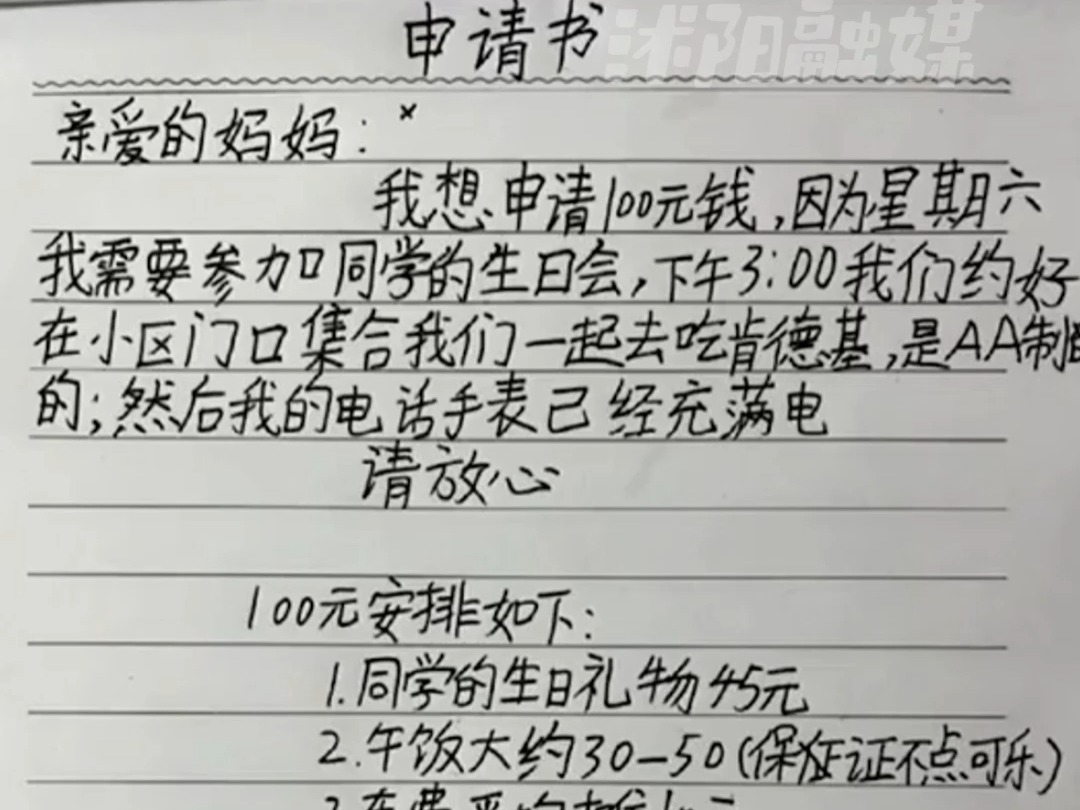 申请书
沭阳融媒
亲爱的妈妈：
我想申请100元钱,因为星期六
我需要参加同学的生日会,下午3:00我们约好
在小区门口集合我们一起去吃肯德基,是AA制
的;然后我的电话手表已经充满电
请放心
100元安排如下:
1.同学的生日礼物45元
2.午饭大约30—50(保证不点可乐)